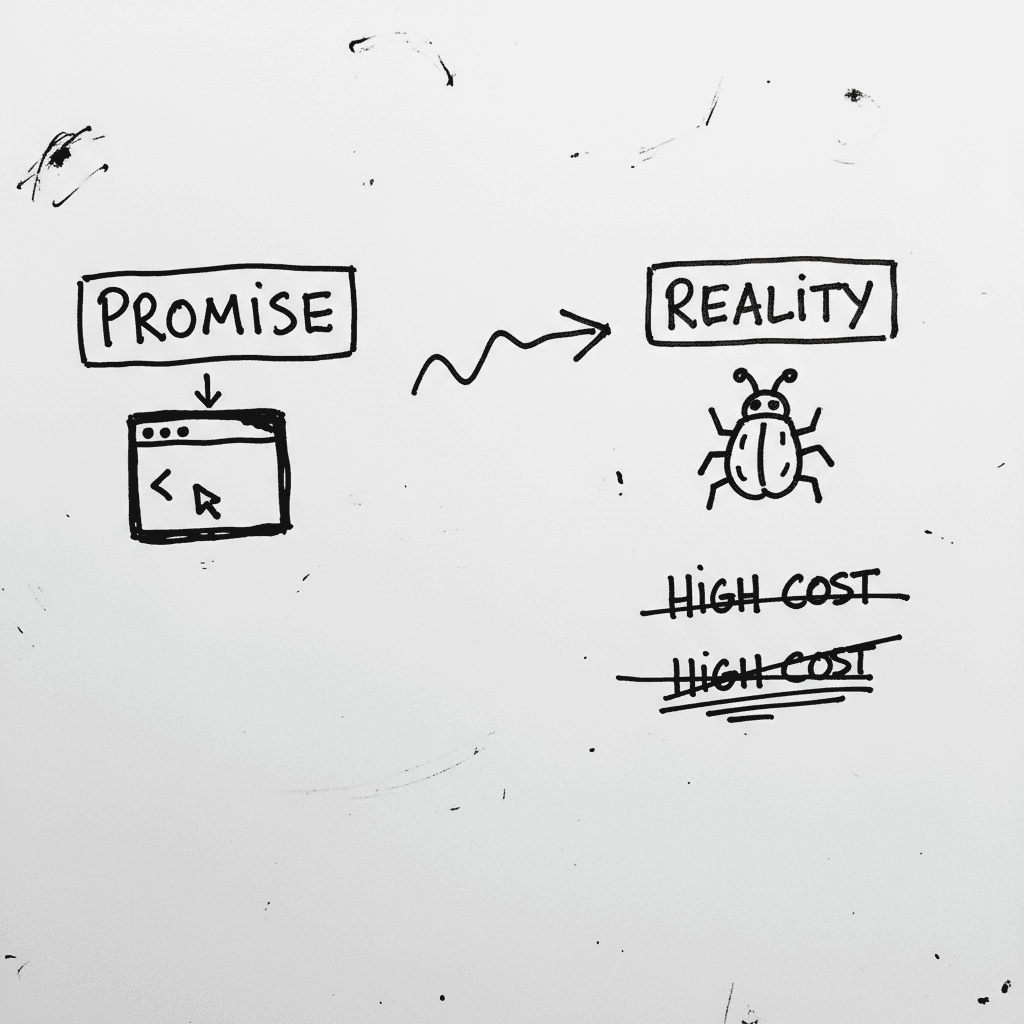 PROMISE
REALITY
<
HIGH COST
HIGH COST